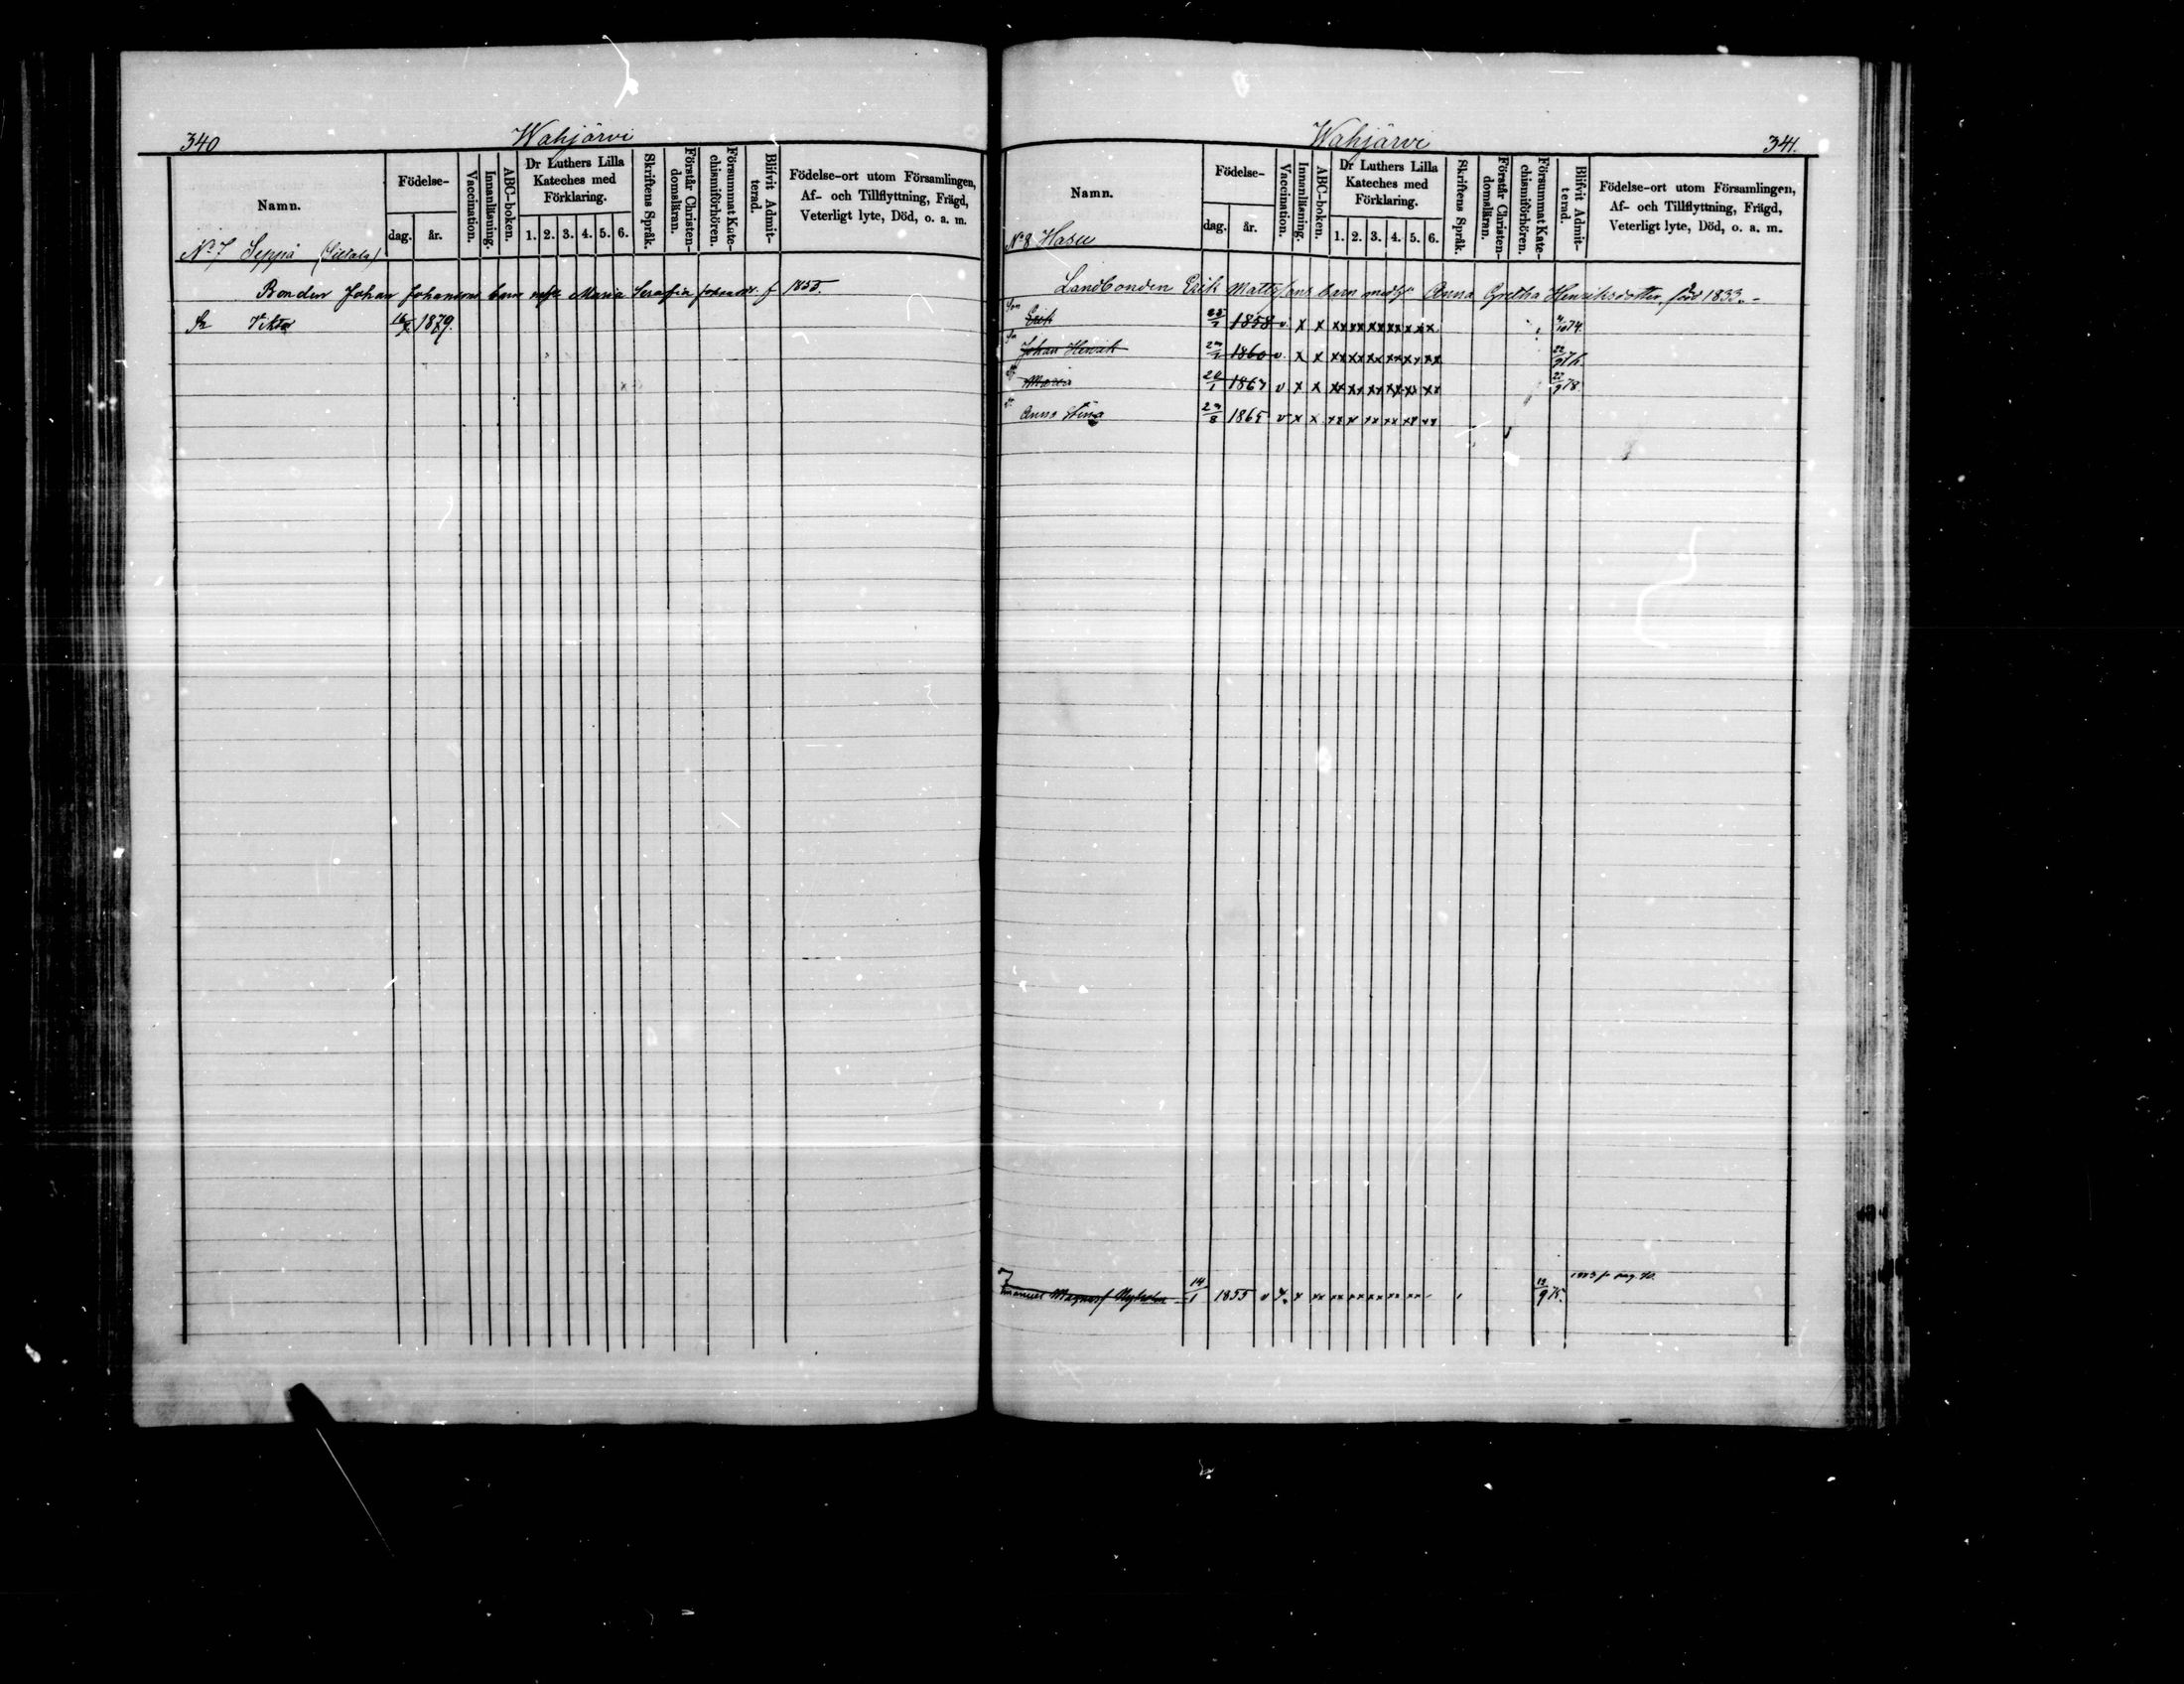 340 Wahjärvi
Namn. Födelse- dag. år. Vaccination. Innanläsning. ABC-boken. Dr Luthers Lilla Kateches med Förklaring. 1. 2. 3. 4. 5. 6. Skriftens Språk. Förstår Christendomsläran. Försummat Katechismiförhören. Blifvit Admitterad. Födelse-ort utom Församlingen, Af- och Tillflyttning, Frägd, Veterligt lyte, Död, o. a. m.
No 7 Seppä
Bonden Johan Johansons barn Maria Serafia f 1855.
Viktor 1879.
Wahjärvi 341.
Namn. Födelse- dag. år. Vaccination. Innanläsning. ABC-boken. Dr Luthers Lilla Kateches med Förklaring. 1. 2. 3. 4. 5. 6. Skriftens Språk. Förstår Christendomsläran. Försummat Katechismiförhören. Blifvit Admitterad. Födelse-ort utom Församlingen, Af- och Tillflyttning, Frägd, Veterligt lyte, Död, o. a. m.
No 8 Hasu
Landbonden Erik Mattssons barn med Anna Gretha Henriksdotter, född 1833.-
Son Erik 1858 v x x xx xx xx xx xx xx 4/10 74.
Johan Henrik 1860 v x x xx xx xx xx xx xx 76.
Maria 20/1 v x x xx xx xx xx xx xx 22/9 78
Anna Stina 1865 v x x xx x xx xx xx xx
14/1 1855 v x xx xx xx xx xx xx 75.